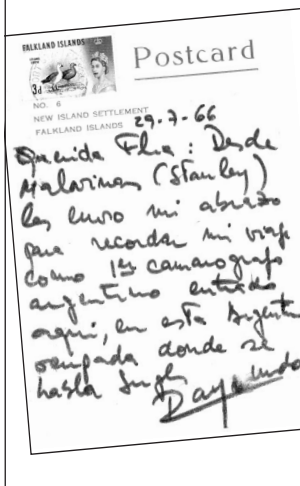 FALKLAND ISLANDS
3d
Postcard
NO. 6
NEW ISLAND SETTLEMENT
FALKLAND ISLANDS
29-7-66
Querida Flia: Desde
Malvinas (Stanley)
les envio mi abrazo
para recordar mi viaje
como 1er camarografo
argentino entrado
aqui, en esta Argentina
ocupada donde se
habla Ingles
Raymundo